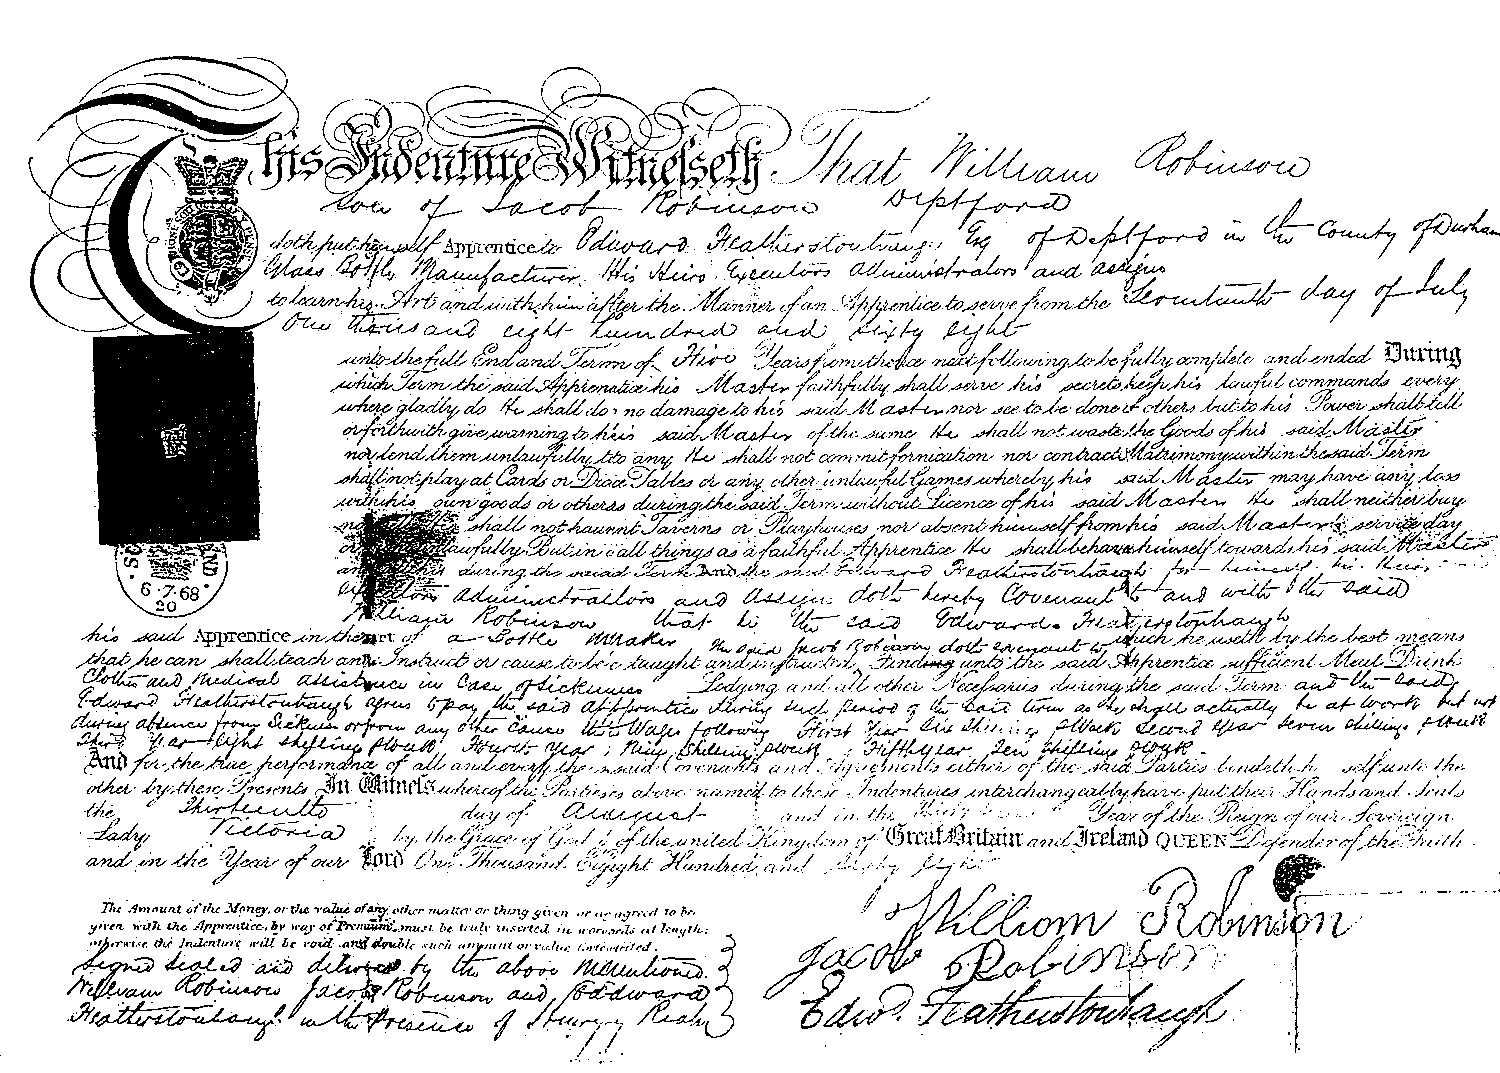 This Indenture Witnesseth That William Robinson
son of Jacob Robinson Deptford
doth put himself Apprentice to Edward Featherstonhaugh Esq of Deptford in the County of Durham
Glass Bottle Manufacturer, His Heirs Executors Administrators and assigns
to learn his Art and with him after the Manner of an Apprentice to serve from the Seventeenth day of July
One thousand eight hundred and sixty eight
unto the full End and Term of Five Years from thence next following to be fully complete and ended During
which Term the said Apprentice his Master faithfully shall serve his secrets keep his lawful commands every
where gladly do He shall do no damage to his said Master nor see to be done of others but to his Power shall tell
or forthwith give warning to his said Master of the same He shall not waste the Goods of his said Master
nor lend them unlawfully to any He shall not commit fornication nor contract Matrimony within the said Term
shall not play at Cards or Dice Tables or any other unlawful Games whereby his said Master may have any loss
with his own goods or others during the said Term without Licence of his said Master He shall neither buy
shall not haunt Taverns or Playhouses nor absent himself from his said Master's service day
unlawfully But in all things as a faithful Apprentice He shall behave himself towards his said Master
during the said Term And the said Edward Featherstonhaugh for himself his Heirs
Administrators and Assigns doth hereby Covenant to and with the said
William Robinson that he the said Edward Featherstonhaugh
his said Apprentice in the Art of a Bottle Maker which he useth by the best means
that he can shall teach and Instruct or cause to be taught and instructed The said Jacob Robinson doth covenant to Finding unto the said Apprentice sufficient Meat Drink
Clothes and Medical assistance in Case of Sickness Lodging and all other Necessaries during the said Term and the said
Edward Featherstonhaugh agrees to pay the said apprentice during such period of the said term as he shall actually be at work but not
during absence from Sickness or from any other cause the Wages following First Year Six Shillings pr Week Second Year seven shillings pr Week
Third Year Eight shillings pr Week, Fourth Year, Nine Shillings pr Week, Fifth Year, Ten Shillings pr Week
And for the true performance of all and every the said Covenants and Agreements either of the said Parties bindeth h self unto the
other by these Presents In Witness whereof the Parties above named to these Indentures interchangeably have put their Hands and Seals
the Thirteenth day of August and in the Year of the Reign of our Sovereign
Lady Victoria by the Grace of God of the united Kingdom of Great Britain and Ireland QUEEN Defender of the Faith
and in the Year of our Lord One Thousand Eight Hundred and Sixty Eight
6·7·68
20
The Amount of the Money, or the value of any other matter or thing given or agreed to be
given with the Apprentice, by way of Premium, must be truly inserted in words at length;
otherwise the Indenture will be void and double such amount or value forfeited.
Signed sealed and delivered by the above Mentioned
William Robinson Jacob Robinson and Edward
Featherstonhaugh in the Presence of
William Robinson
Jacob Robinson
Edwd. Featherstonhaugh